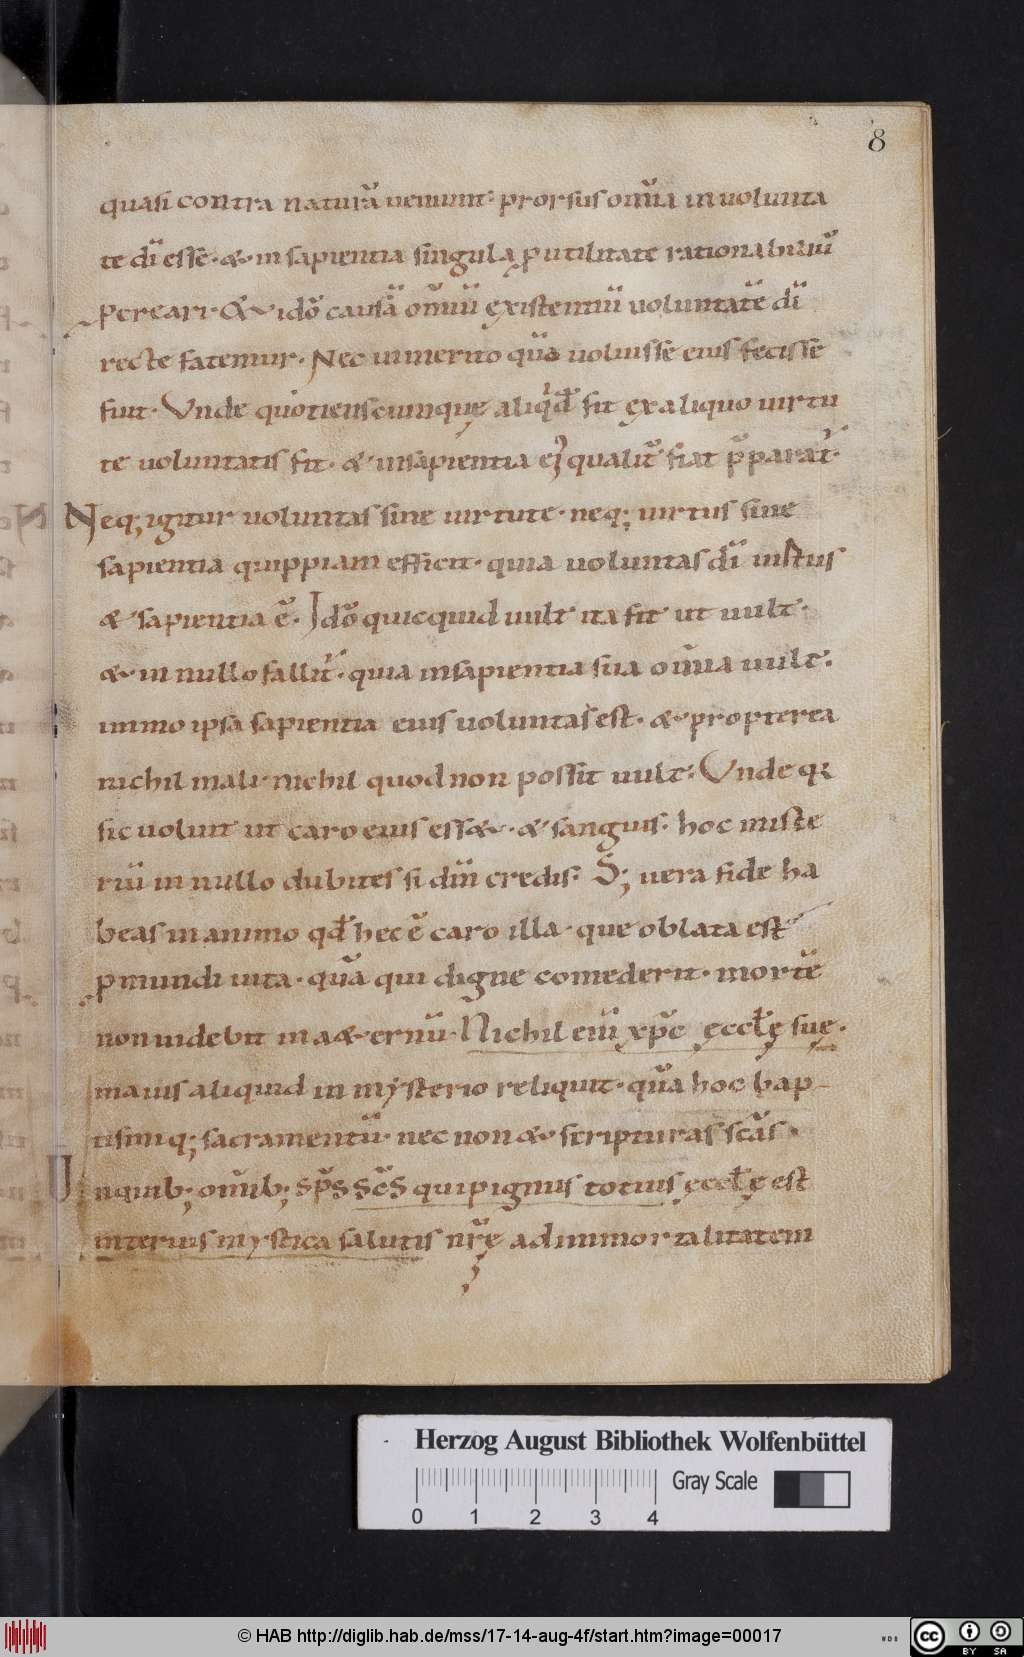 8
quasi contra naturā ueniunt· prorsus om̄ia in uolunta
te dī esse· & in sapientia singula ꝓ utilitate rationabiliū
ꝓcreari· & idō causā om̄iū existentiū uoluntatē dī
recte fatemur· Nec inmerito quā uoluisse eius fecisse
fuit· Vnde quotienscumque aliqđ fit ex aliquo uirtu
te uoluntatis fit· & in sapientia ei qualit̄ fiat p̄parat᷑·
Neq; igitur uoluntas sine uirtute· neq; uirtus sine
sapientia quippiam efficit· quia uoluntas dī uirtus
& sapientia ē· Idō quicquid uult ita fit ut uult·
& in nullo fallit᷑· quia in sapientia sua om̄ia uult·
immo ipsa sapientia eius uoluntas est· & propterea
nichil mali· nichil quod non possit uult· Vnde q;
sic uoluit ut caro eius ess&· & sanguis· hoc miste
riū in nullo dubites si dm̄ credis· S; uera fide ha
beas in animo qđ hec ē caro illa· que oblata est
ꝓ mundi uita· quā qui digne comederit· mortē
non uidebit in a&ernū· Nichil eni xp̄c ęccłę suę·
maius aliquid in mysterio reliquit· quā hoc bap
tismiq; sacramentū· nec non & scripturas scās·
In quib; om̄ib; sp̄s sc̄s qui pignus totius ęccłę est
interius mystica salutis nr̄ę ad inmortalitatem
Herzog August Bibliothek Wolfenbüttel
Gray Scale
0 1 2 3 4
© HAB http://diglib.hab.de/mss/17-14-aug-4f/start.htm?image=00017
WDB
cc BY SA